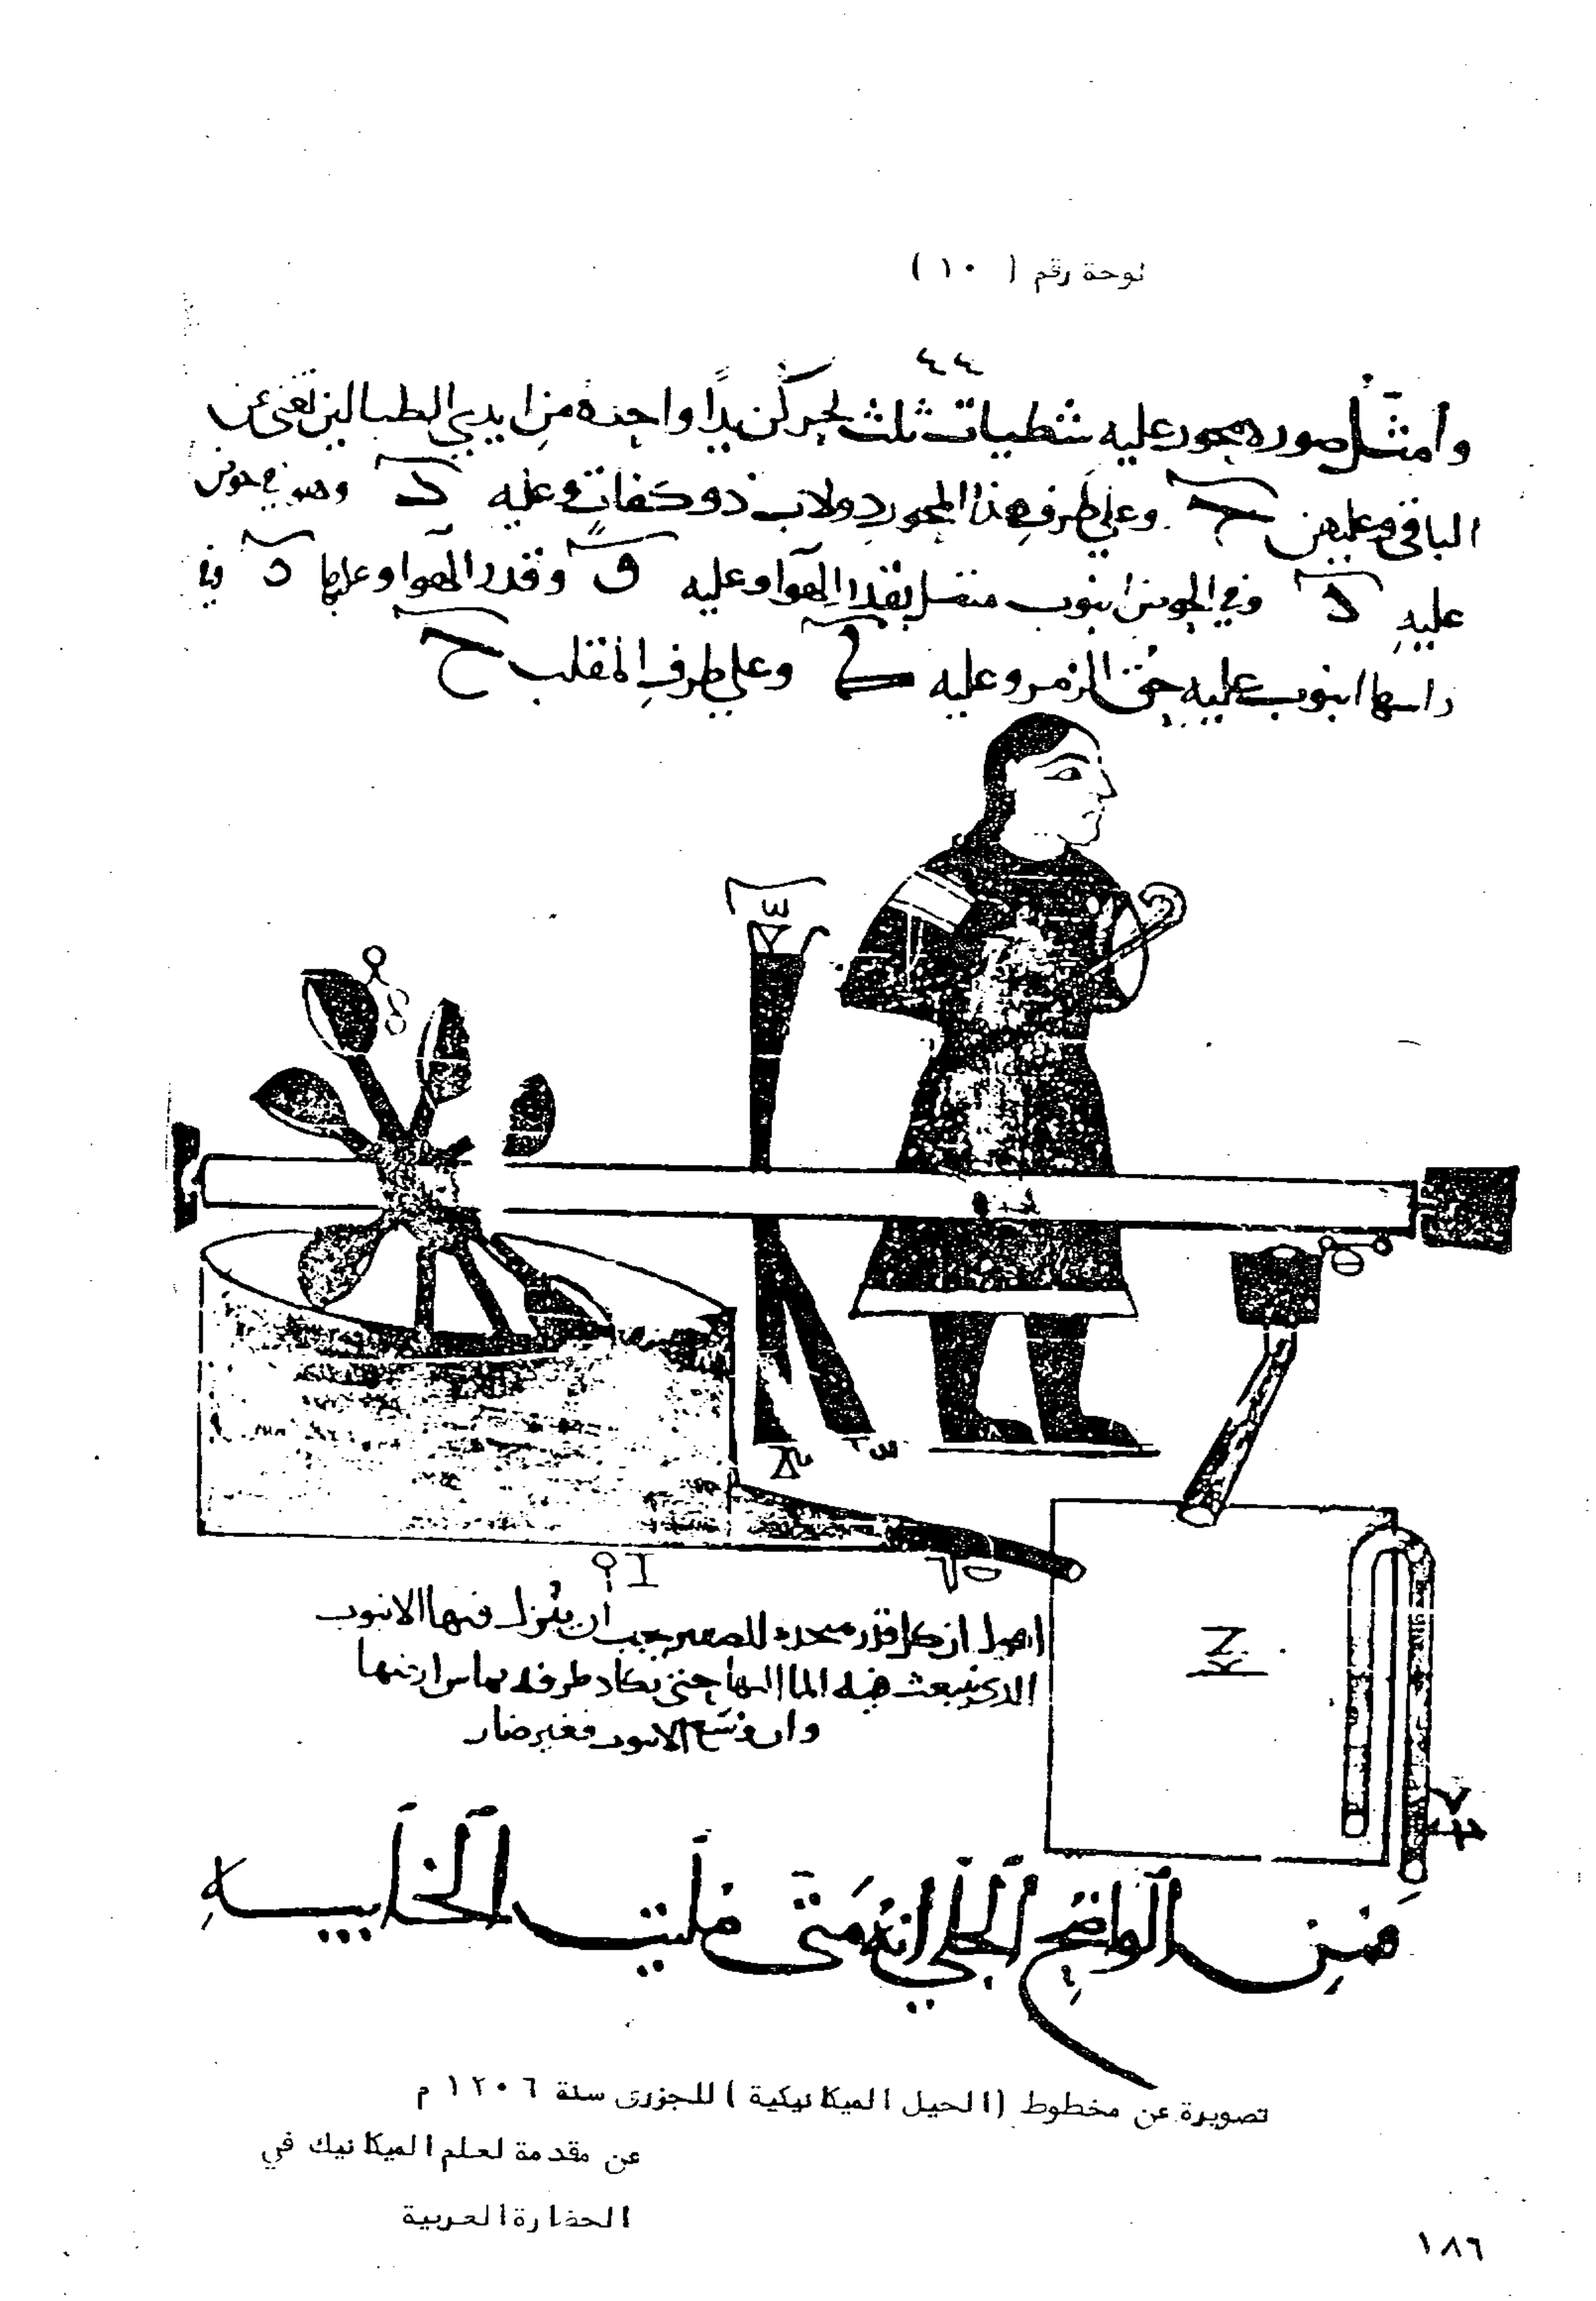 لوحة رقم ( ١٠ )
٤٤
وامثل صوره محور عليه شظيات ثلث لجركن يدًا واحدة من ايدي الطبالين تغنى عن
الباقى وعليهن ح وعلى طرف هذا المحور دولاب ذو كفات وعليه د وهو في حوض
عليه د وفي الحوض انبوب متصل بقدر الهوا وعليه ق وقدر الهوا وعليها د في
راسها انبوب عليه حق الزمر وعليه ك وعلى طرف المقلب ح
اصول ان كل قدر متخذه للصفير يجب ان ينزل فيها الانبوب
الذي ينبعث فيه الما اليها حتى يكاد طرفه يماس ارضها
وان وسع الانبوب فغير ضار
فمن الواضح الجلي انه متى ملیت الخابيه
تصويرة عن مخطوط (الحيل الميكانيكية ) للجزرى سنة ١٢٠٦ م
عن مقدمة لعلم الميكانيك في
الحضارة العربية
١٨٦